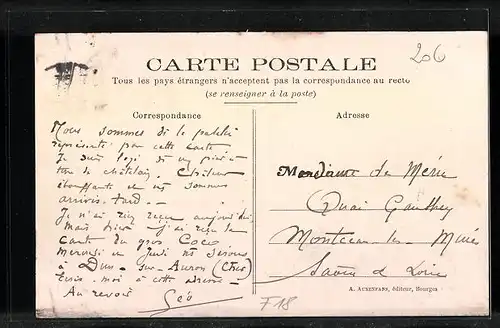 206
CARTE POSTALE
Tous les pays étrangers n'acceptent pas la correspondance au recto
(se renseigner à la poste)
Correspondance
Nous sommes ds le patelin
représenté par cette carte.
Je suis logé
de châtelain. Chaleur
étouffante et ns sommes
arrivés tard —
Je n'ai rien reçu aujourd'hui
mais hier j'ai reçu la
carte du gros Coco
Mercredi et jeudi ns serons
à Dun-sur-Auron (Cher)
Ecris-moi à cette adresse —
Au revoir
Géo
Adresse
Madame de
Quai Gauthey
Montceau-les-Mines
Saône et Loire
A. AUXENFANS, éditeur, Bourges
F18